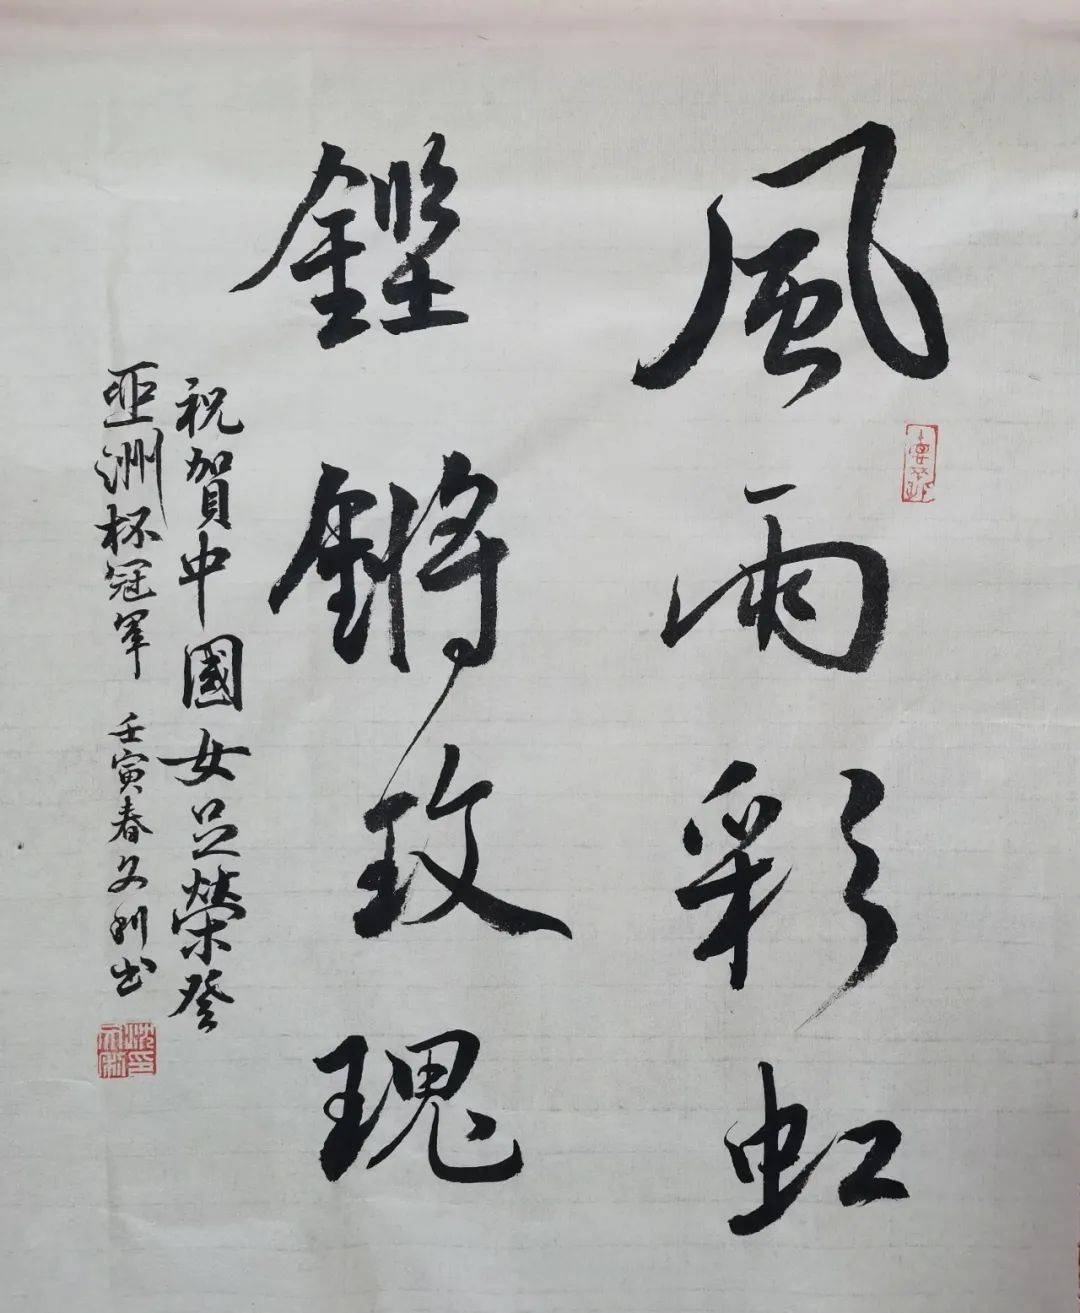 風雨彩虹
鏗鏘玫瑰
祝賀中國女足榮登
亞洲杯冠軍 壬寅春文利书